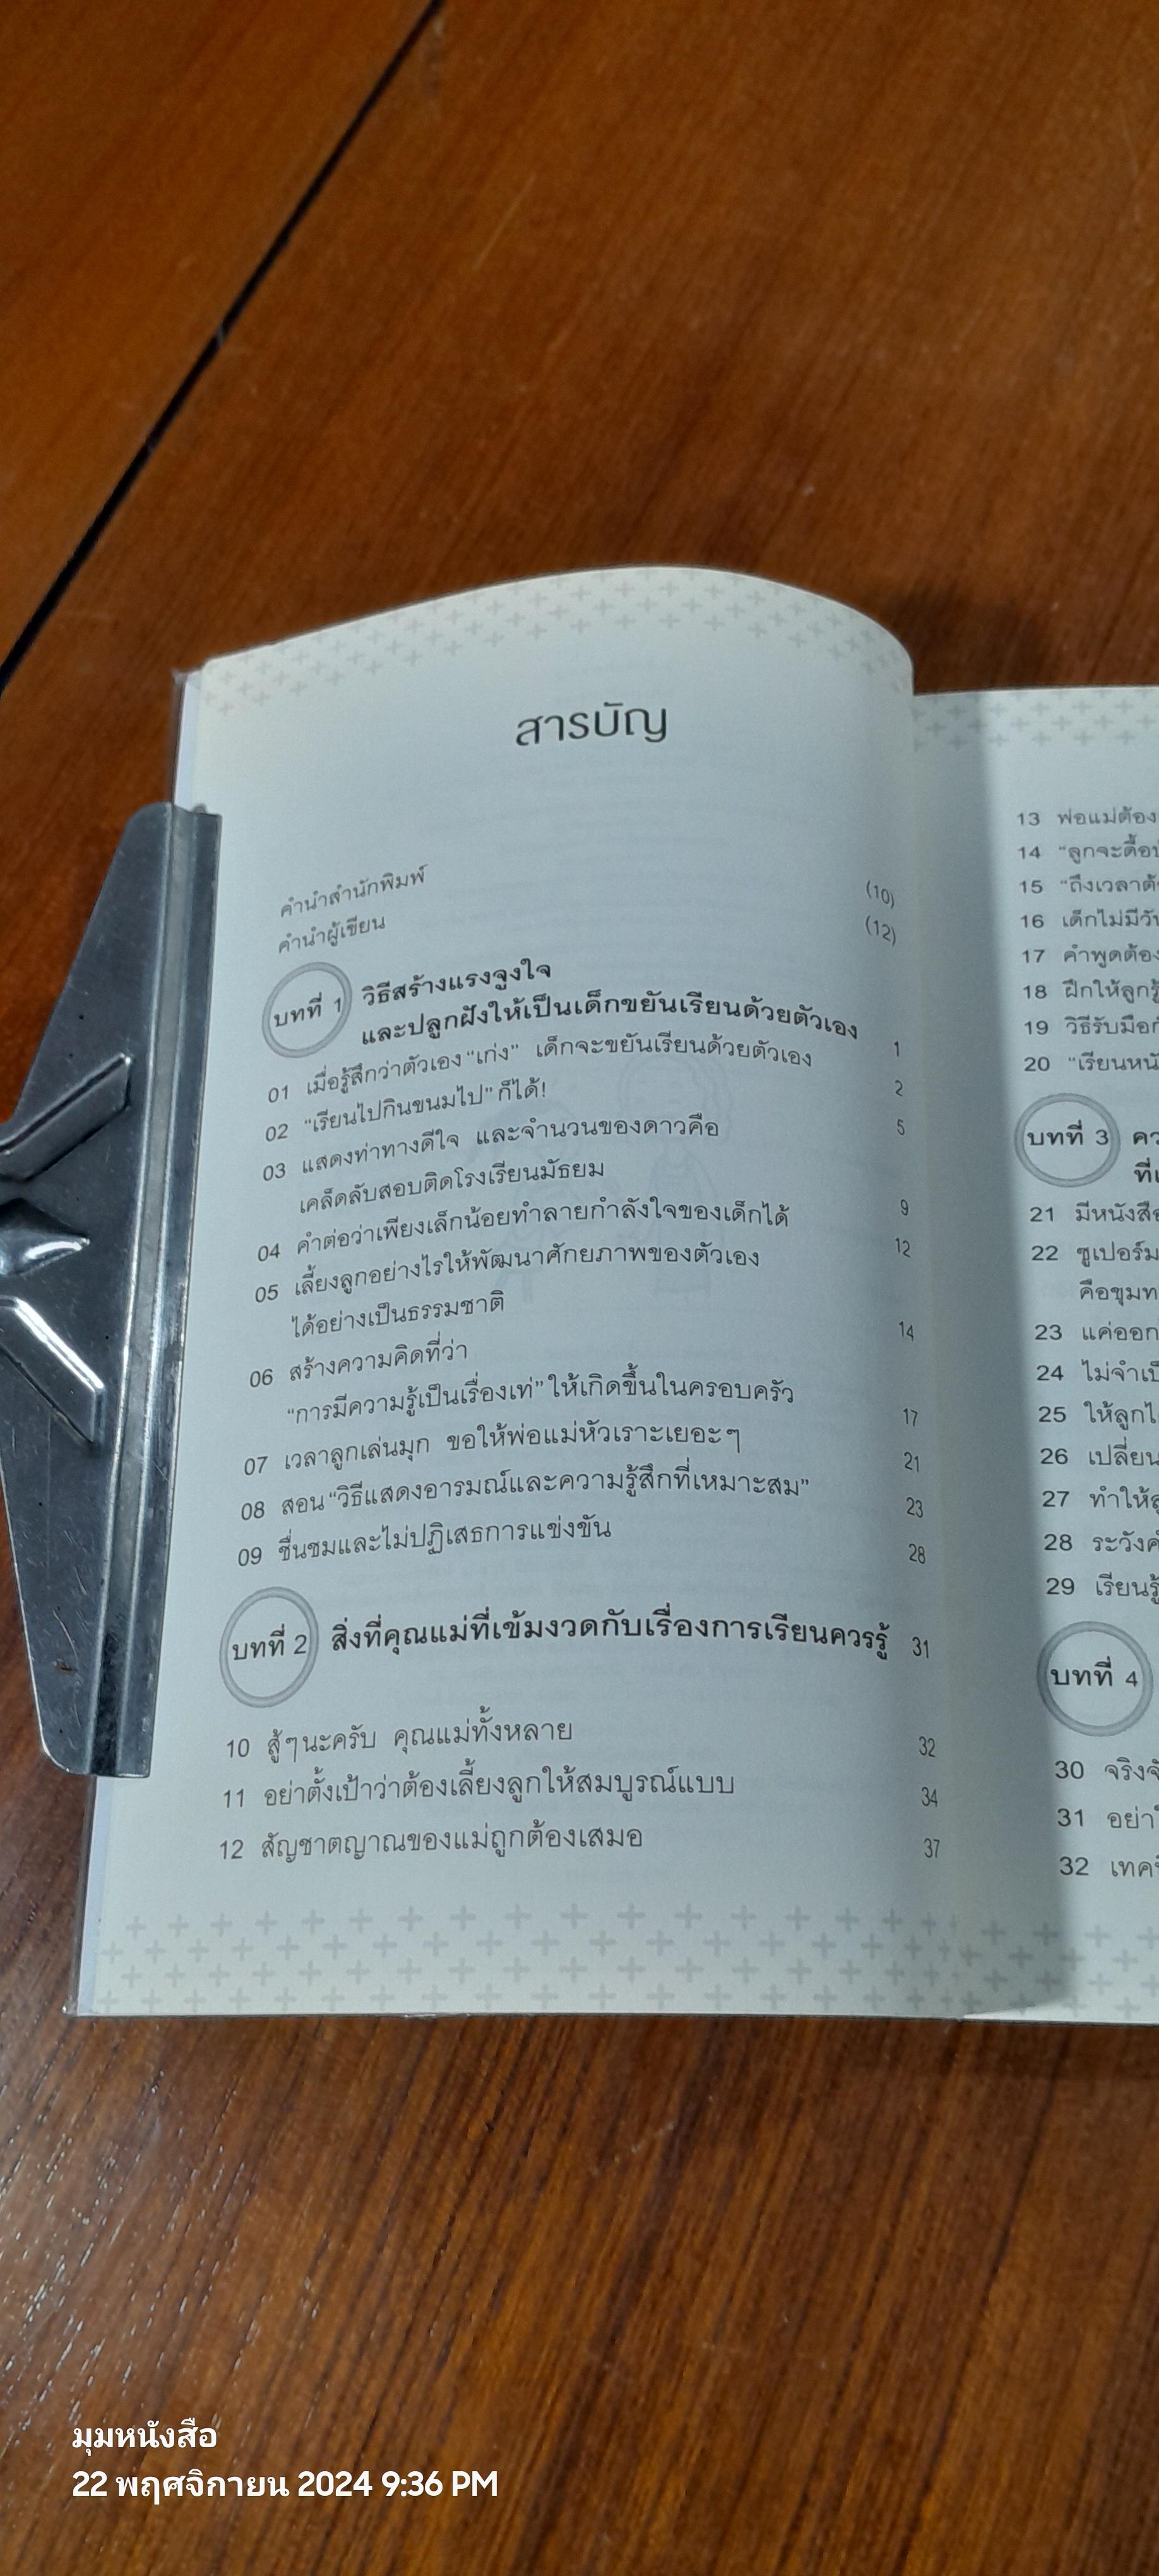 สารบัญ
คำนำสำนักพิมพ์ (10)
คำนำผู้เขียน (12)
บทที่ 1 วิธีสร้างแรงจูงใจ
และปลูกฝังให้เป็นเด็กขยันเรียนด้วยตัวเอง 1
01 เมื่อรู้สึกว่าตัวเอง “เก่ง” เด็กจะขยันเรียนด้วยตัวเอง 2
02 “เรียนไปกินขนมไป” ก็ได้! 5
03 แสดงท่าทางดีใจ และจำนวนของดาวคือ
เคล็ดลับสอบติดโรงเรียนมัธยม 9
04 คำต่อว่าเพียงเล็กน้อยทำลายกำลังใจของเด็กได้ 12
05 เลี้ยงลูกอย่างไรให้พัฒนาศักยภาพของตัวเอง
ได้อย่างเป็นธรรมชาติ 14
06 สร้างความคิดที่ว่า
“การมีความรู้เป็นเรื่องเท่” ให้เกิดขึ้นในครอบครัว 17
07 เวลาลูกเล่นมุก ขอให้พ่อแม่หัวเราะเยอะๆ 21
08 สอน “วิธีแสดงอารมณ์และความรู้สึกที่เหมาะสม” 23
09 ชื่นชมและไม่ปฏิเสธการแข่งขัน 28
บทที่ 2 สิ่งที่คุณแม่ที่เข้มงวดกับเรื่องการเรียนควรรู้ 31
10 สู้ๆ นะครับ คุณแม่ทั้งหลาย 32
11 อย่าตั้งเป้าว่าต้องเลี้ยงลูกให้สมบูรณ์แบบ 34
12 สัญชาตญาณของแม่ถูกต้องเสมอ 37
13 พ่อแม่ต้อง
14 “ลูกจะดื้อ
15 “ถึงเวลา
16 เด็กไม่มี
17 คำพูดต้อง
18 ฝึกให้ลูก
19 วิธีรับมือ
20 “เรียน
บทที่ 3
21 มีหนังสือ
22 ซูเปอร์
คือขุม
23 แค่ออก
24 ไม่จำ
25 ให้ลูก
26 เปลี่ยน
27 ทำให้
28 ระวัง
29 เรียนรู้
บทที่ 4
30 จริง
31 อย่า
32
มุมหนังสือ
22 พฤศจิกายน 2024 9:36 PM